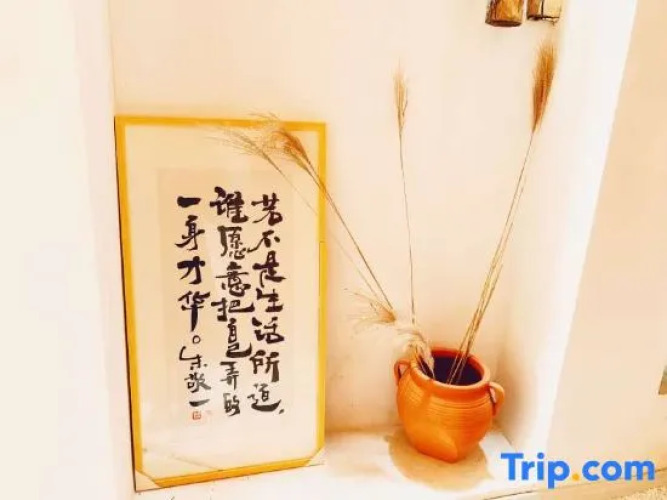 若不是生活所逼，
谁愿意把自己弄的
一身才华。朱敬一
Trip.com